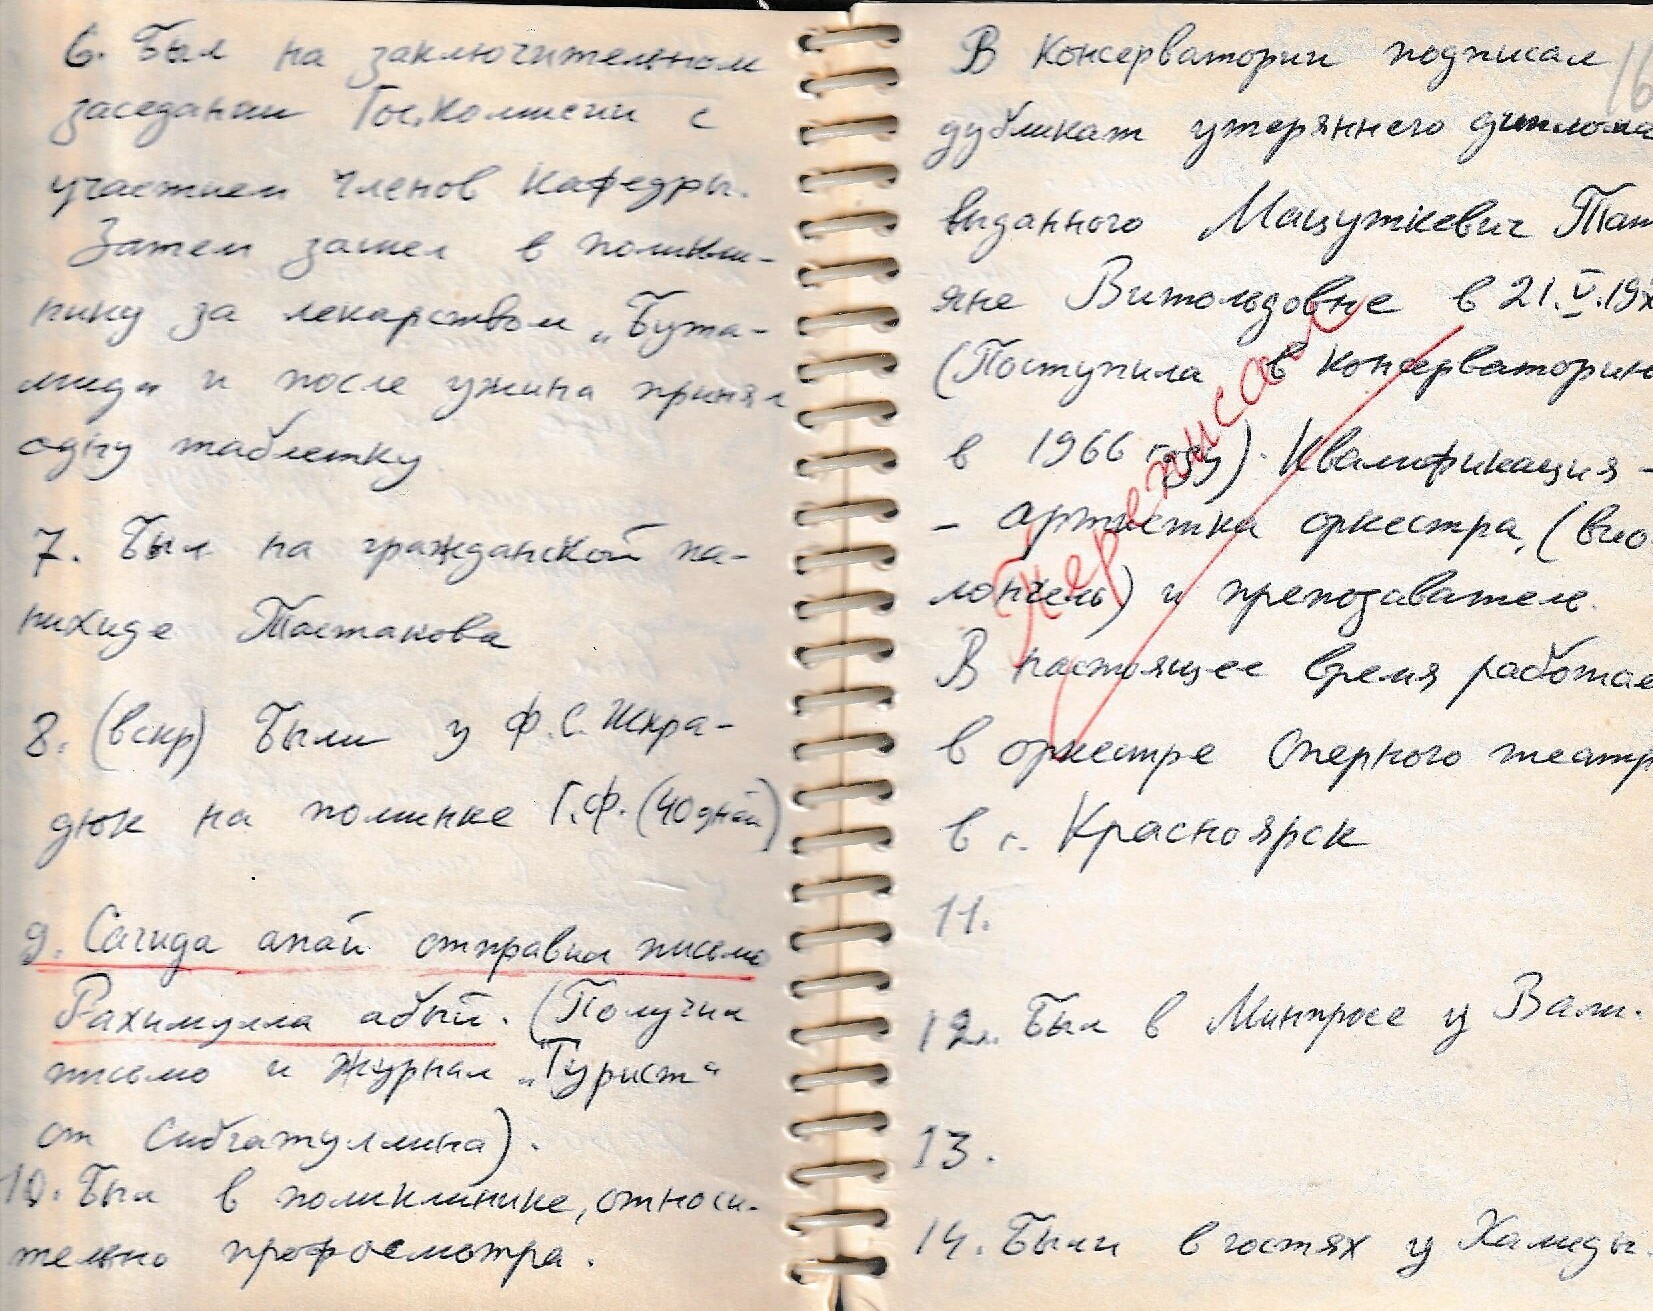 6. Был на заключительном
заседании Гос.Комиссии с
участием членов Кафедры.
Затем зашел в поликли-
нику за лекарством „Бута-
мид" и после ужина принял
одну таблетку
7. Был на гражданской па-
нихиде Тостанова
8. (вскр) Были у Ф.С. Искра-
дюк на поминке Г.Ф. (40 дней)
9. Сагида апай отправил письмо
Рахимулла абый. (Получил
письмо и журнал „Турист"
от Сибгатуллина).
10. Был в поликлинике, относи-
тельно профосмотра.
16
В Консерватории подписал
дубликат утерянного диплома
выданного Мацуткевич Тат
яне Витольдовне в 21.V.19
(Поступила в консерваторию
в 1966 году). Квалификация -
- артистка оркестра, (вио
лончель) и преподаватель.
В настоящее время работае
в оркестре Оперного театр
в г. Красноярск
Переписал
11.
12. Был в Минпросе у Вали.
13.
14. Были в гостях у Хамиды.